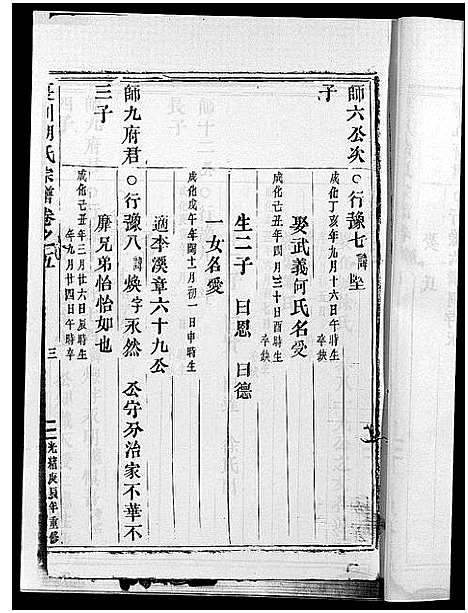 師六公次子
○行豫七諱堅
成化丁亥年九月十六日午時生
卒缺
娶武義何氏名愛
成化己丑年四月三十日酉時生
卒缺
生二子 曰恩 曰德
一女名愛
成化戊午年閏十一月初一日申時生
適李溪章六十九公
師九府君三子
○行豫八諱煥字永然 公守分治家不華不
靡兄弟怡怡如也
成化己丑年三月廿六日辰時生
年九月廿四日午時卒
胡氏宗譜卷之五
三
光緒庚辰年重修